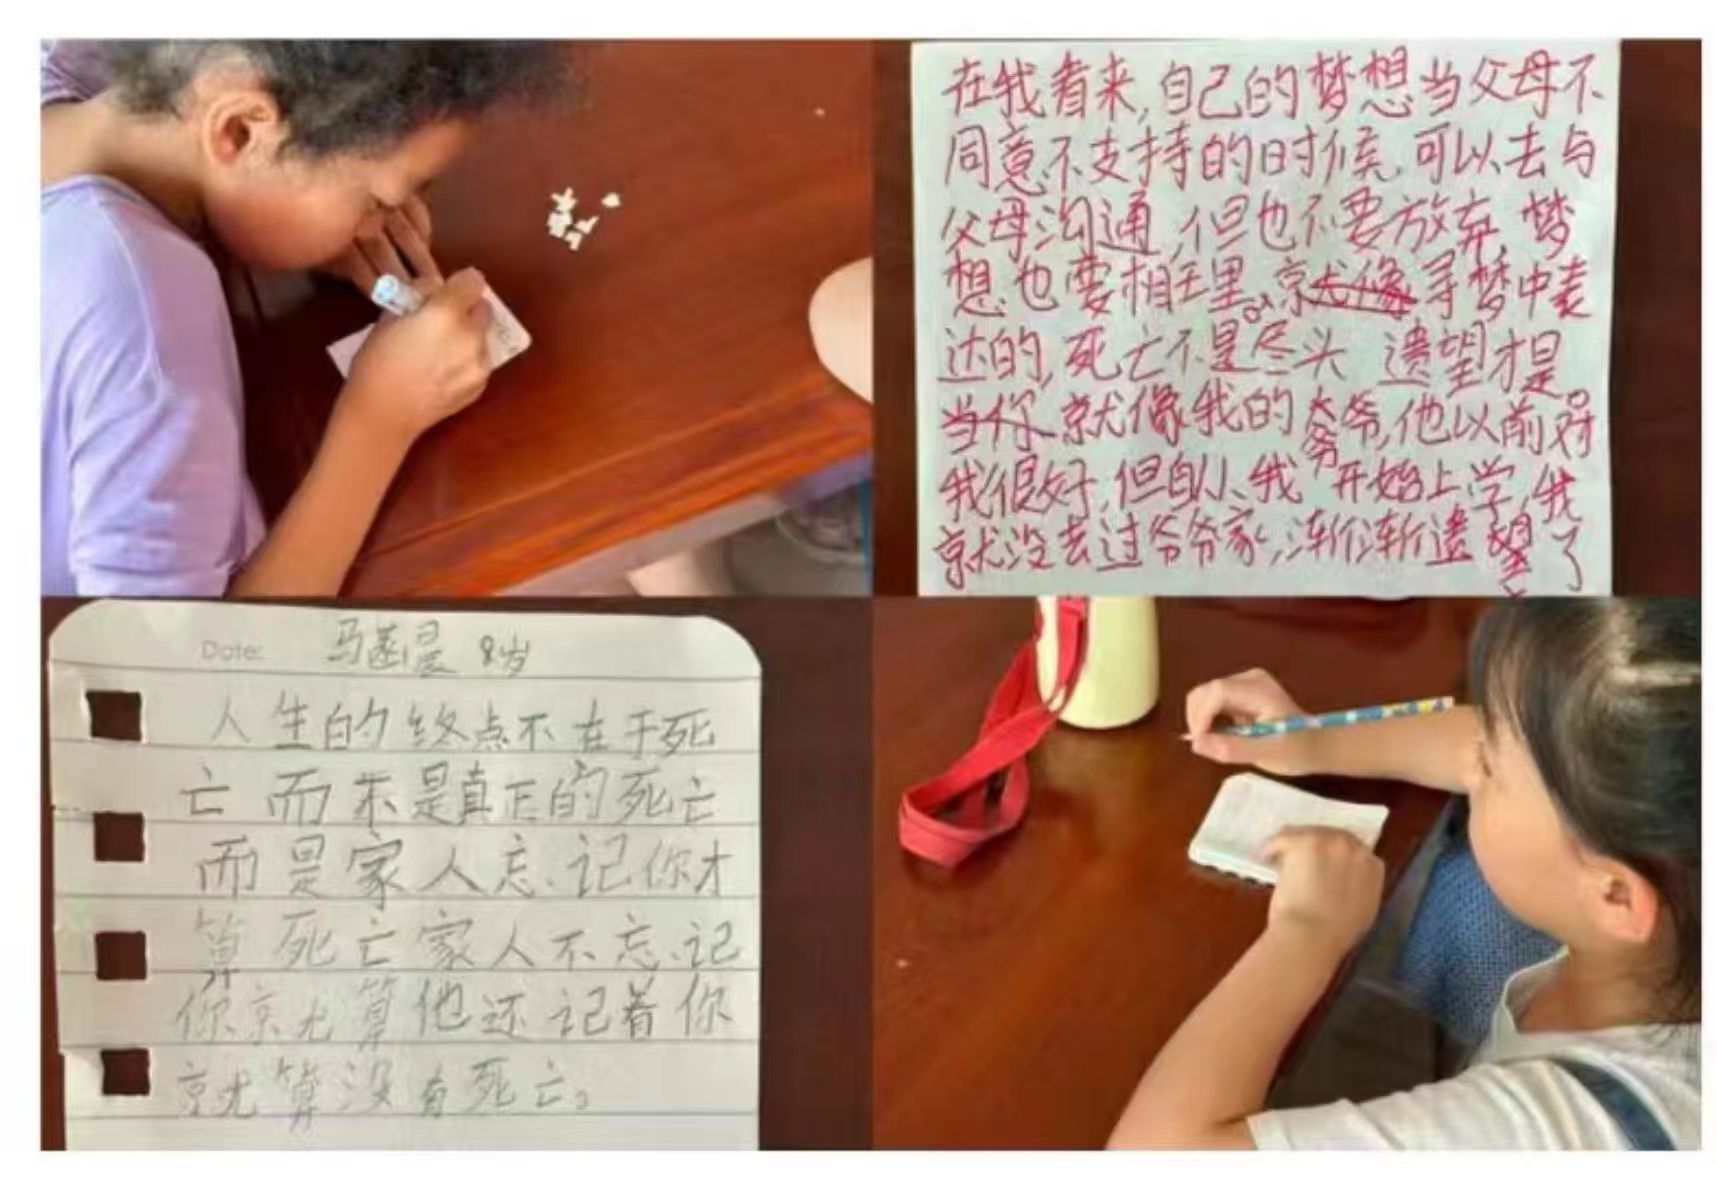 在我看来,自己的梦想当父母不
同意不支持的时候,可以去与
父母沟通,但也不要放弃,梦
想也要相王里。就像寻梦中表
达的,死亡不是尽头 遗望才是。
当你就像我的大爷爷,他以前对
我很好,但自从我开始上学,我
就没去过爷爷家,渐渐遗望了
Date: 8岁
人生的终点不在于死
亡而不是真正的死亡
而是家人忘记你才
算死亡家人不忘记
你就算他还记着你
就算没有死亡。